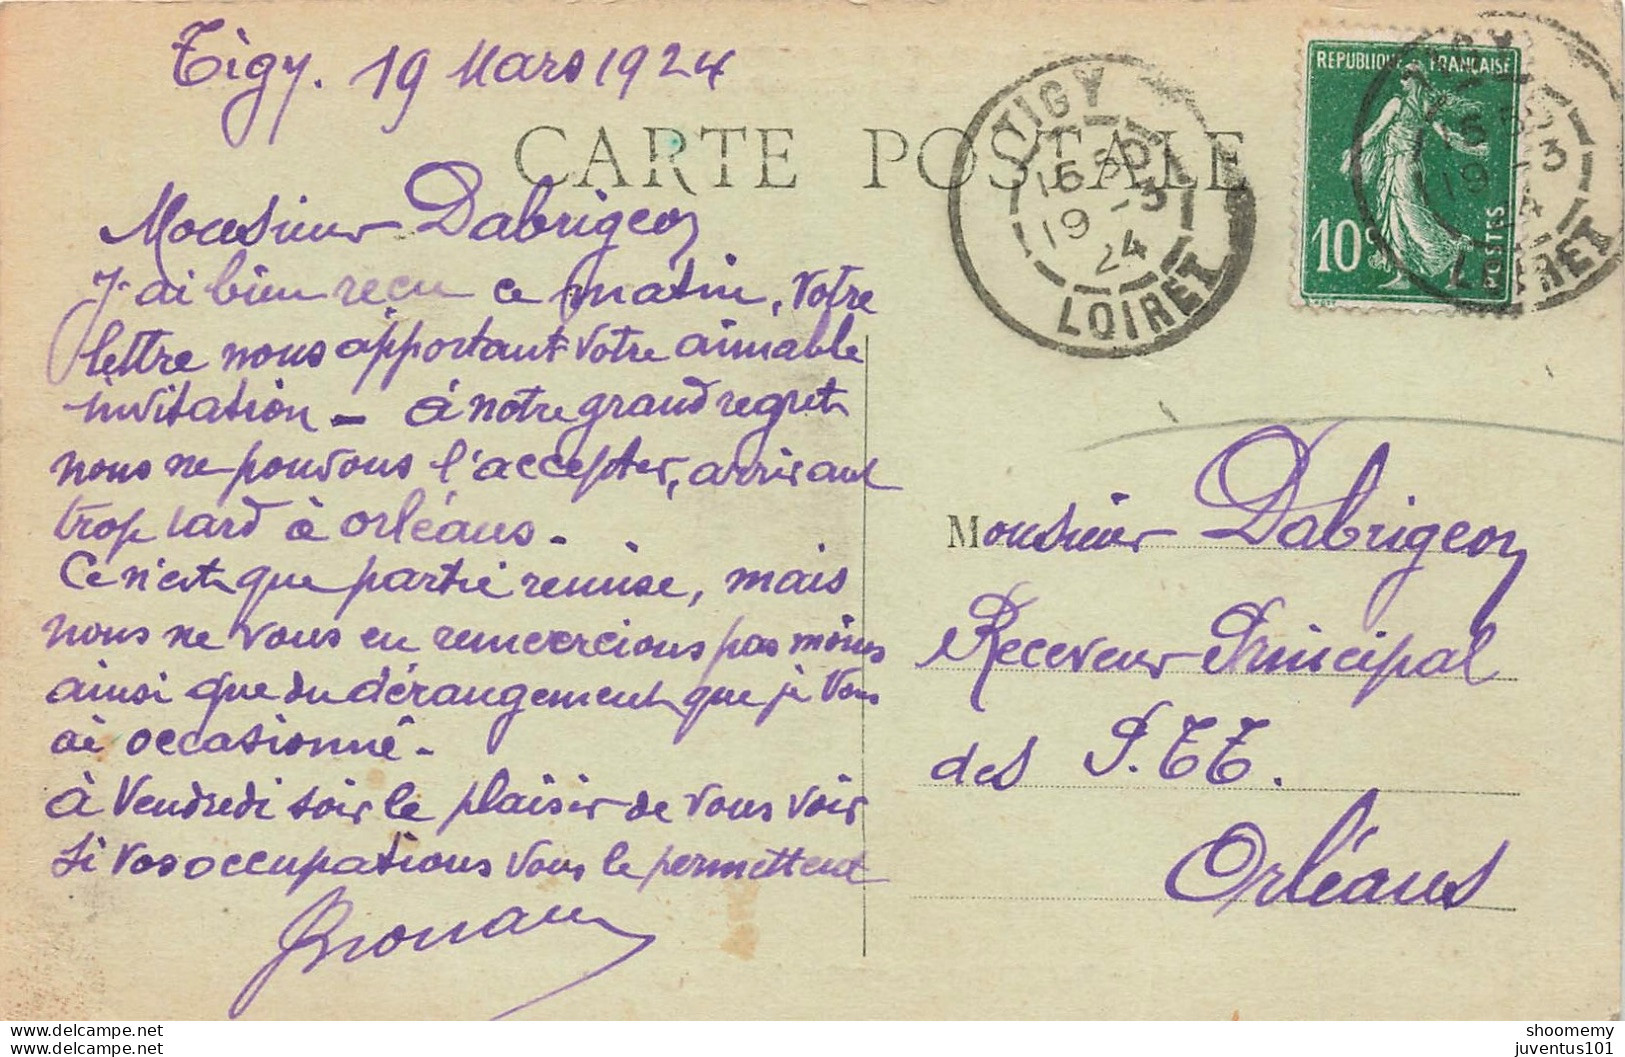 Tigy. 19 Mars 1924
CARTE POSTALE
Monsieur Dabrigeon
J'ai bien reçu ce matin, votre
lettre nous apportant votre aimable
invitation - à notre grand regret
nous ne pouvons l'accepter, arrivant
trop tard à Orléans -
Ce n'est que partie remise, mais
nous ne vous en remercions pas moins
ainsi que du dérangement que je vous
ai occasionné -
à Vendredi soir le plaisir de vous voir
si vos occupations vous le permettent
TIGY
19 - 3
24
LOIRET
REPUBLIQUE FRANÇAISE
10c
POSTES
TIGY
19 - 3
24
LOIRET
Monsieur Dabrigeon
Receveur Principal
des P.TT.
Orléans
www.delcampe.net
www.delcampe.net
shoomemy
juventus101